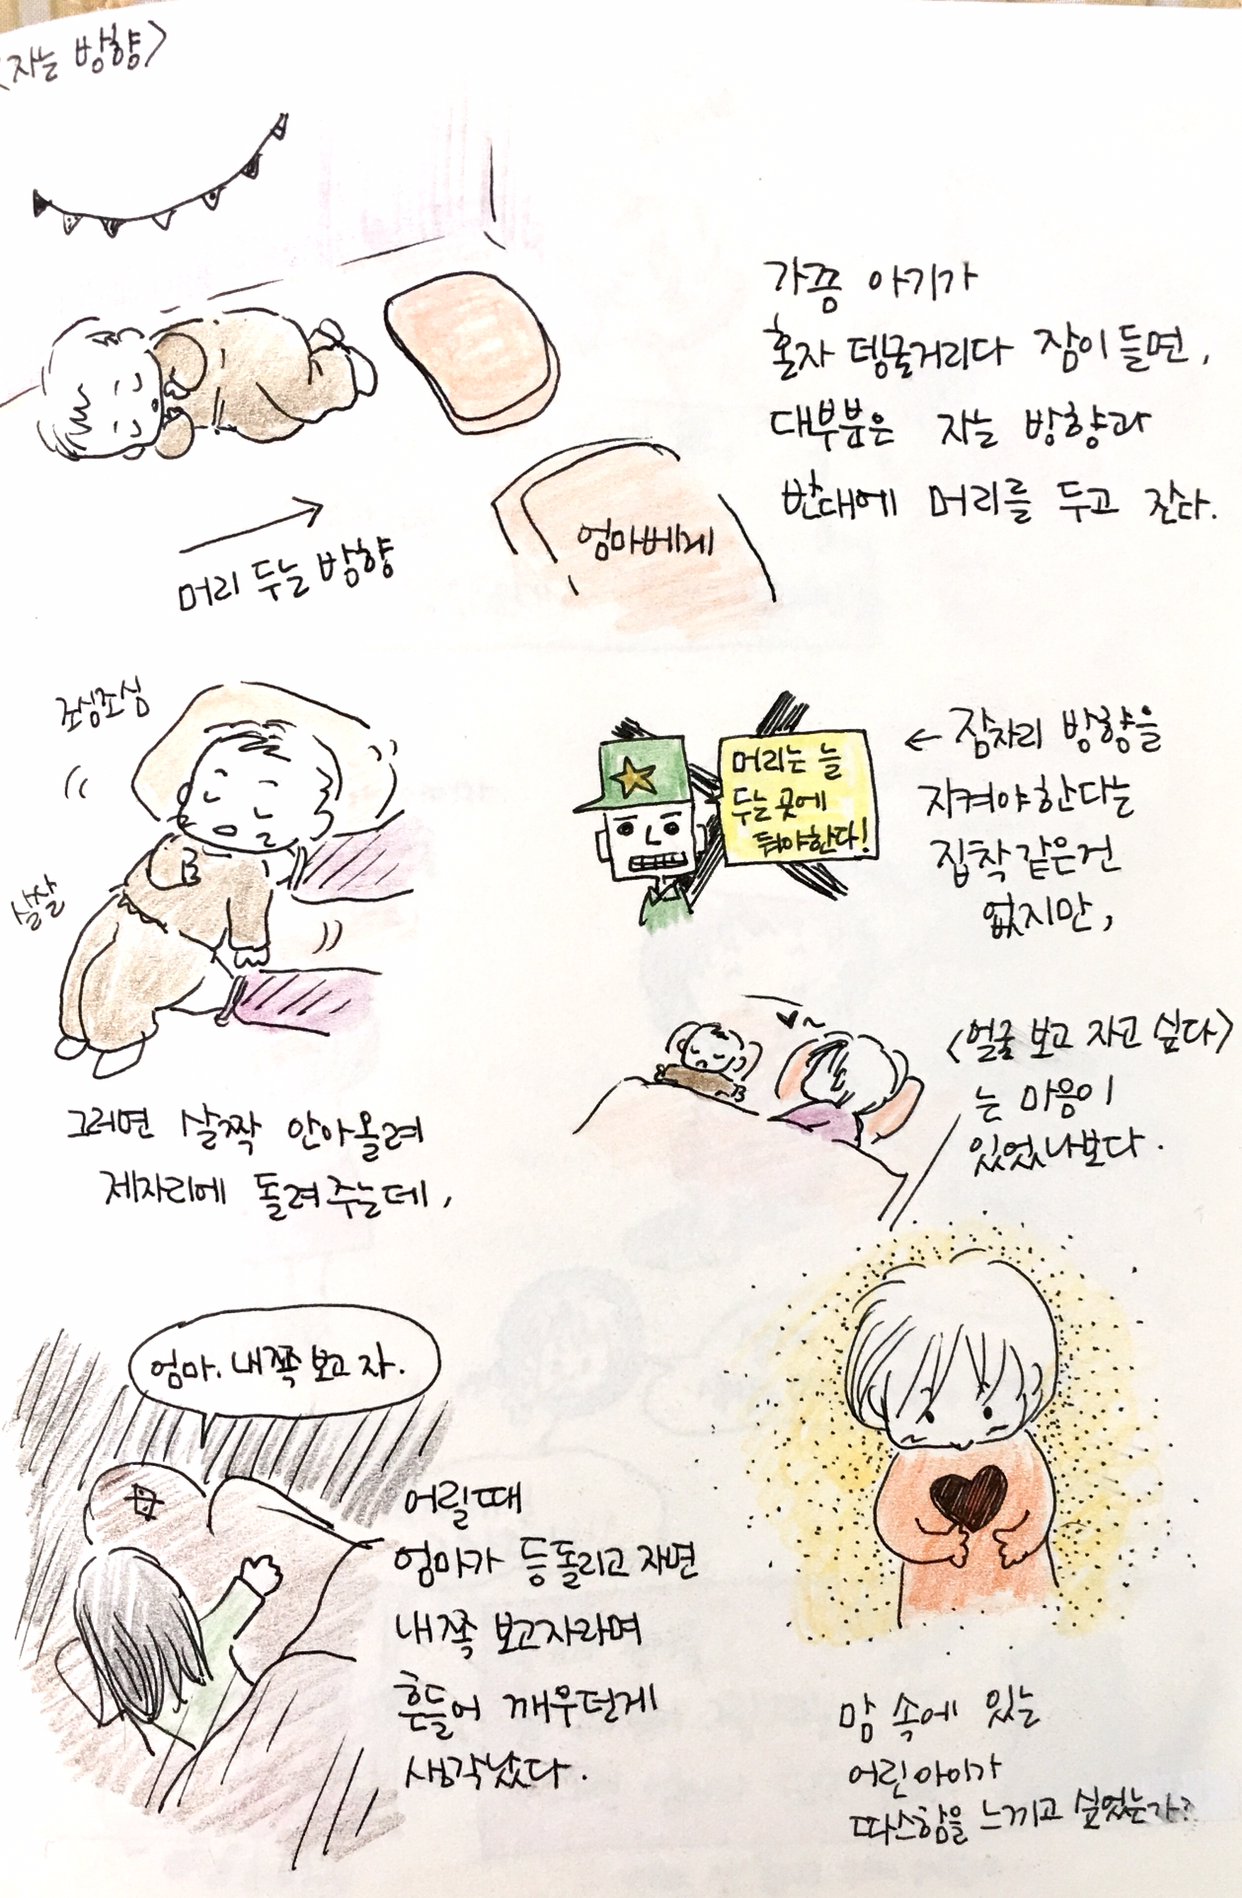 <자는 방향>
가끔 아기가
혼자 뎅굴거리다 잠이 들면,
대부분은 자는 방향과
반대에 머리를 두고 잔다.
엄마베게
머리 두는 방향
조심조심
살살
그러면 살짝 안아올려
제자리에 돌려주는데,
머리는 늘
두는 곳에
둬야한다!
← 잠자리 방향을
지켜야한다는
집착같은건
없지만,
<얼굴 보고 자고 싶다>
는 마음이
있었나보다.
엄마. 내쪽 보고 자.
어릴때
엄마가 등돌리고 자면
내쪽 보고자라며
흔들어 깨우던게
생각났다.
맘 속에 있는
어린아이가
따스함을 느끼고 싶었는가?